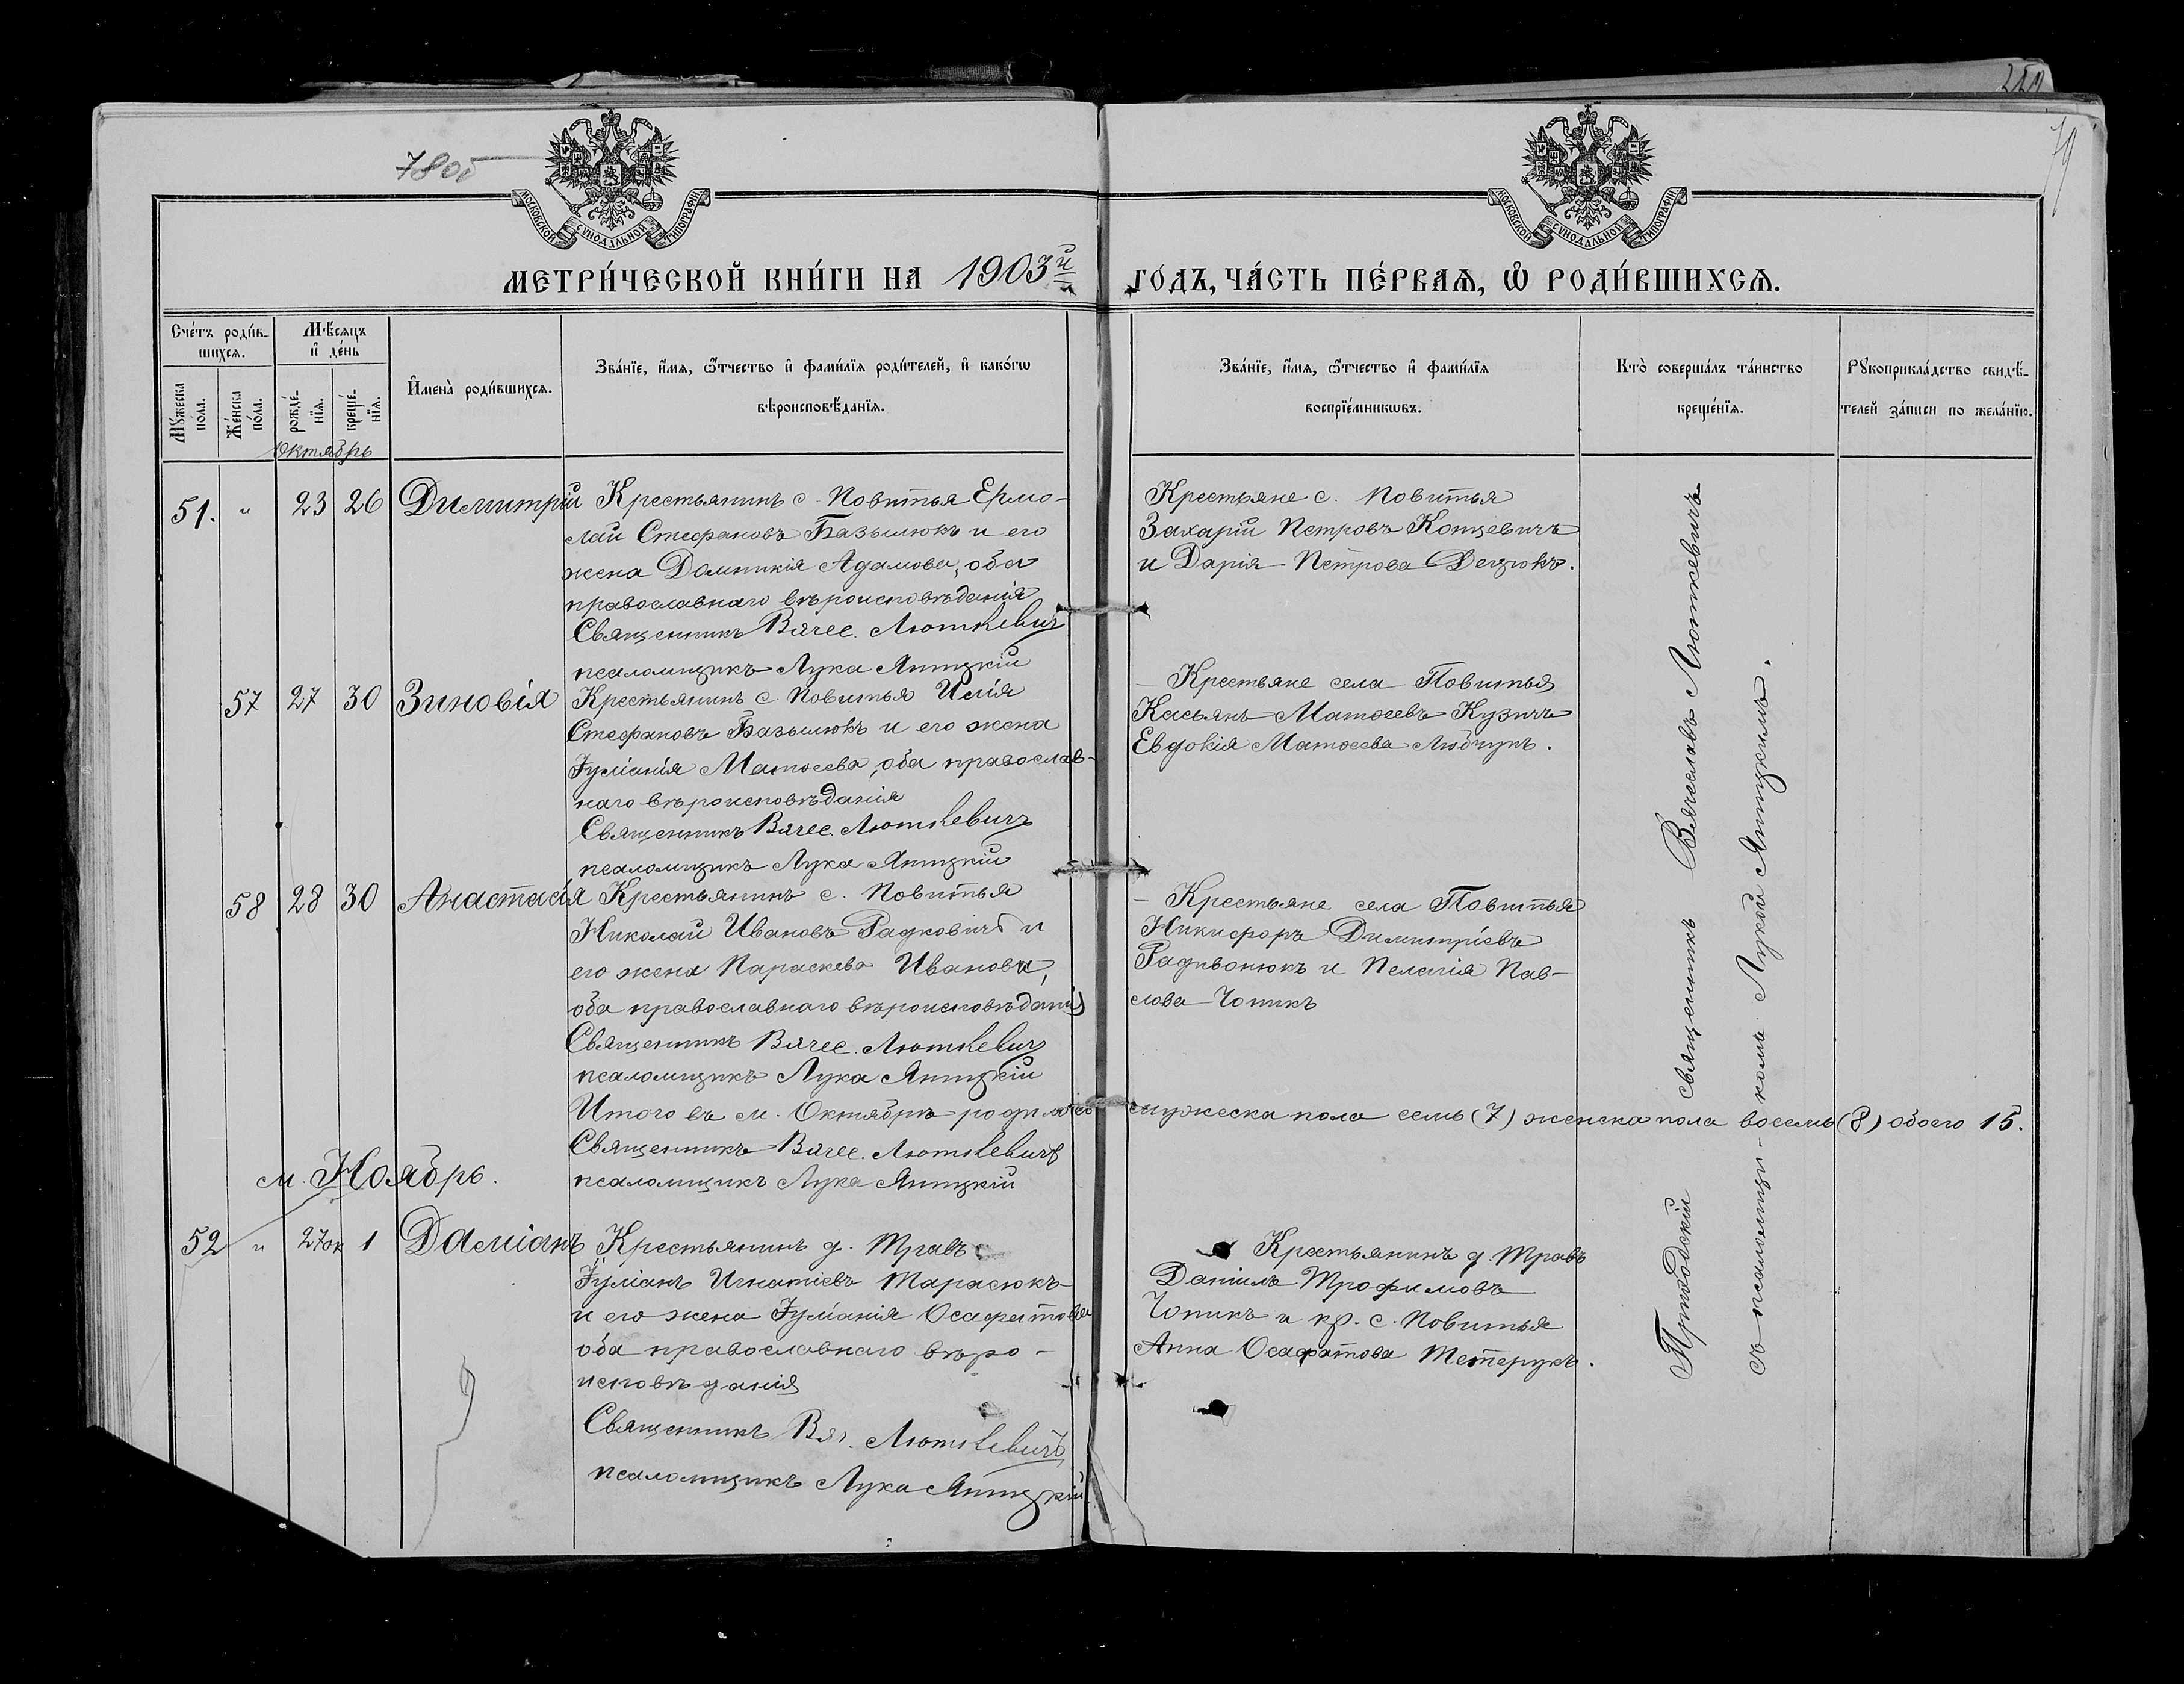 259
79
78об
МОСКОВСКОЙ СѴНОДАЛЬНОЙ ТИПОГРАФІИ
МОСКОВСКОЙ СѴНОДАЛЬНОЙ ТИПОГРАФІИ
МЕТРИ́ЧЕСКОЙ КНИ́ГИ НА 1903й ГО́ДЪ, ЧА́СТЬ ПЕ́РВАѦ, Ѽ РОДИ́ВШИХСѦ.
Сче́тъ роди́в-
шихсѧ.
Мѣ́сяцъ
и҆ де́нь
Мꙋ́жеска по́ла.
Же́нска по́ла.
рожде́-нїѧ.
креще́-нїѧ.
И҆мена̀ роди́вшихсѧ.
Зва́нїе, и҆́мѧ, ѻ҆́тчество и҆ фами́лїѧ роди́телей, и҆ како́гѡ
вѣроисповѣ́данїѧ.
Зва́нїе, и҆́мѧ, ѻ҆́тчество и҆ фами́лїѧ
воспрїе́мникѡвъ.
Кто̀ соверша́лъ та́инство
креще́нїѧ.
Рꙋкоприкла́дство свидѣ́-
телей за́писи по жела́нїю.
Октябрь
51. " 23 26 Димитрій
Крестьянинъ с. Повитья Ермо-
лай Стефановъ Базылюкъ и его
жена Домникія Адамова, оба
православнаго вѣроисповѣданія
Священникъ Вячес. Люткевич
псаломщикъ Лука Яницкій
Крестьяне с. Повитья
Захарій Петровъ Концевичъ
и Дарія Петрова Децюкъ.
57 27 30 Зиновія
Крестьянинъ с. Повитья Илія
Стефановъ Базылюкъ и его жена
Іуліанія Матѳеева, оба православ-
наго вѣроисповѣданія
Священникъ Вячес. Люткевичъ
псаломщикъ Лука Яницкій
Крестьяне села Повитья
Касьянъ Матѳеевъ Кузичъ
Евдокія Матѳеева Любчукъ.
58 28 30 Анастасія
Крестьянинъ с. Повитья
Николай Ивановъ Радковичъ и
его жена Параскева Иванова,
оба православнаго вѣроисповѣданія
Священникъ Вячес. Люткевич
псаломщикъ Лука Яницкій
Крестьяне села Повитья
Никифоръ Димитріевъ
Радивонюкъ и Пелагія Пав-
лова Чопикъ
Итого въ м. Октябрѣ родилось мужеска пола семь (7) женска пола восемь (8) обоего 15.
Священникъ Вячес. Люткевичъ
псаломщикъ Лука Яницкій
м. Ноябрь.
52 " 27 ок 1 Даміанъ
Крестьянинъ д. Травъ
Іуліанъ Игнатіевъ Тарасюкъ
и его жена Іуліанія Осафатова
оба православнаго вѣро-
исповѣданія
Священникъ Вяч. Люткевичъ
псаломщикъ Лука Яницкій
Крестьянинъ д. Травъ
Даніилъ Трофимовъ
Чопикъ и кр. с. Повитья
Анна Осафатова Тетерукъ.
Приходскій священникъ Вячеславъ Люткевичъ
съ псаломщи-комъ Лукой Яницкимъ.